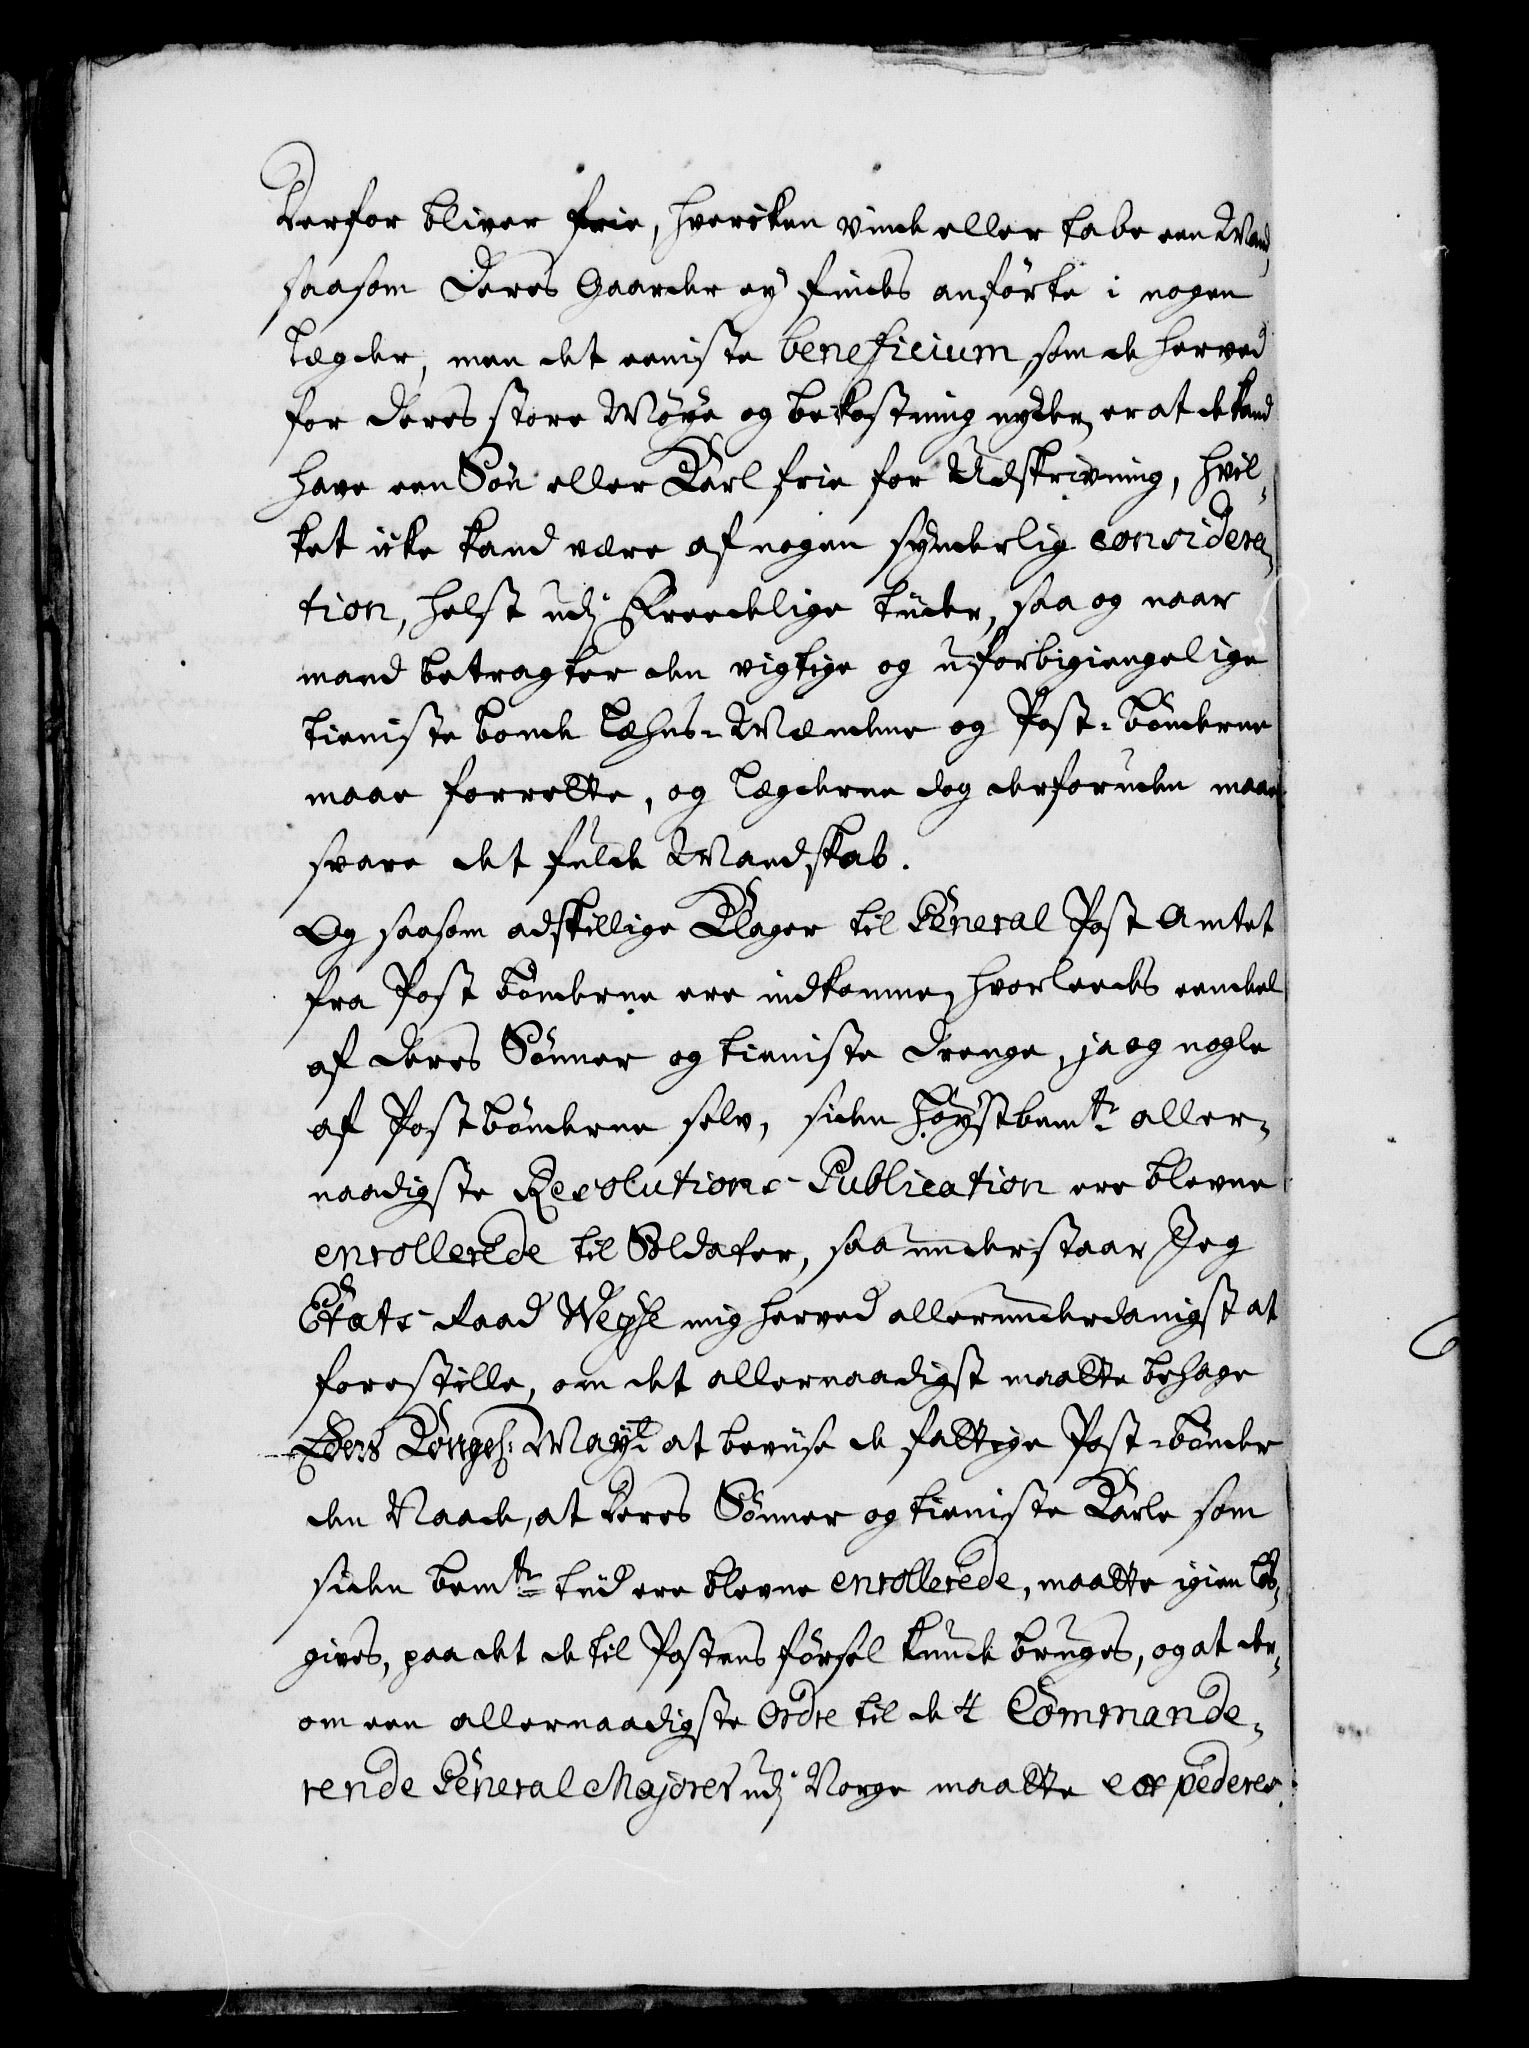 derfor bliver frie, hvercken vinde eller tabe een Mand,
saasom deres Gaarder ey findes anförte i nogen
Lægder, men det eeniste beneficium, som de herved
for deres store Möye og bekostning nyder, er at de kand
have een Sön eller Karl frie for Udskrivning, hvil-
ket icke kand være af nogen synderlig considera-
tion, helst udj Freedelige tiider, saa og naar
mand betragter den vigtige og uforbigiengelige
tieniste bonde Lehns-Mændene og Post-bönderne
maae forrette, og Lægderne dog derforuden maae
svare det fulde Mandskab.
Og saasom adskillige Klager til General Post Amtet
fra Post bönderne ere indkomne, hvorleedes eendeel
af deres Sönner og tieniste drenge, ja og nogle
af Postbönderne selv, siden höystbemte aller-
naadigste Resolutions-Publication ere blevne
enrollerede til Soldater, saa understaar Jeg
Etats-Raad Weyse mig herved allerunderdanigst at
forestille, om det allernaadigst maatte behage
Eders Kongel: Mayt at beviise de fattige Post-bönder
den Naade, at deres Sönner og tieniste Karle som
siden bemte tiid ere blevne enrollerede, maatte igien lös-
gives, paa det de til Postens försel kunde bruges, og at der-
om een allernaadigste Ordre til de 4 Commande-
rende General Majorer udj Norge maatte expederes.